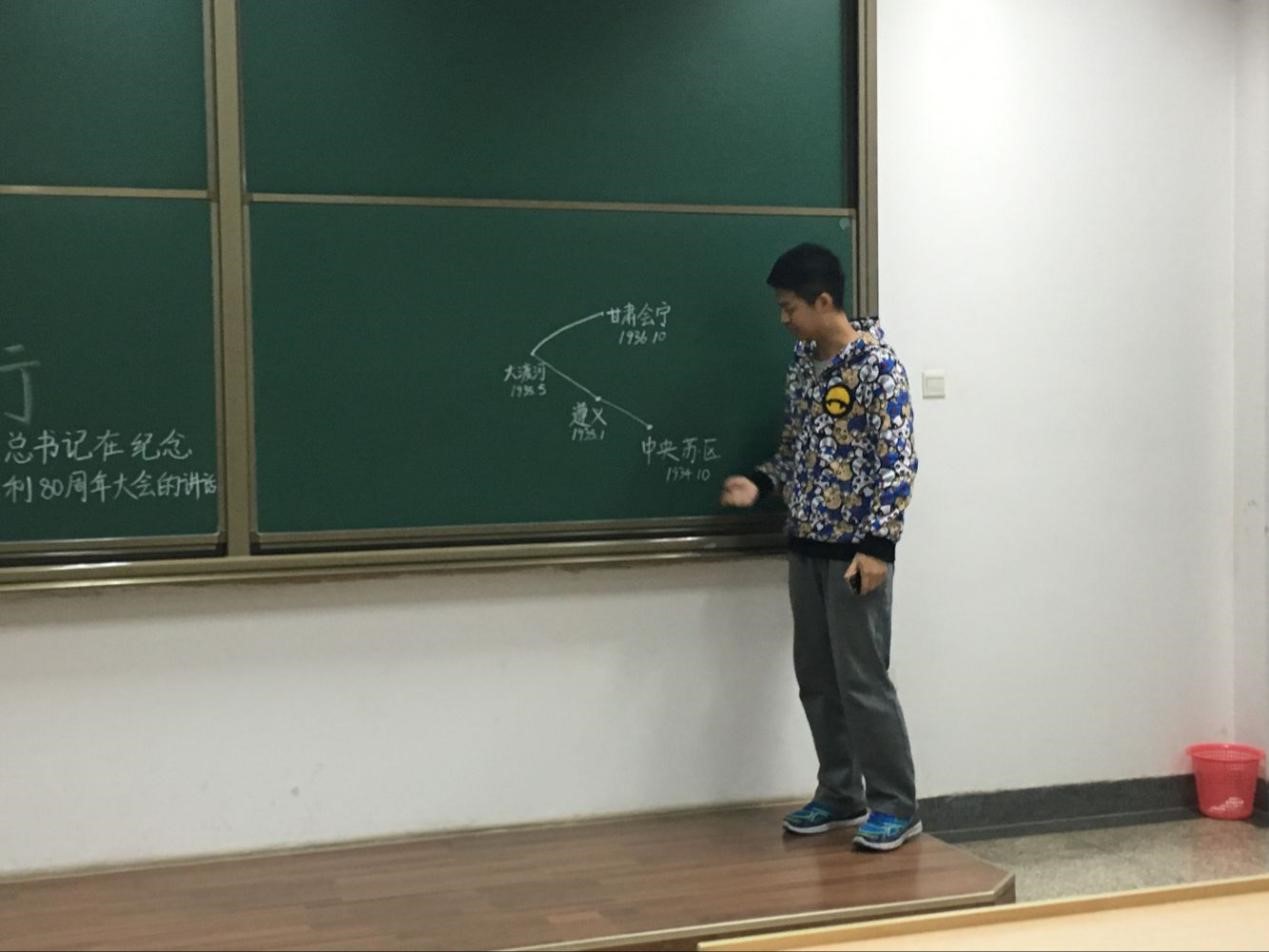 总书记在纪念
利80周年大会的讲话
甘肃会宁
1936.10
大渡河
1935.5
遵义
1935.1
中央苏区
1934.10